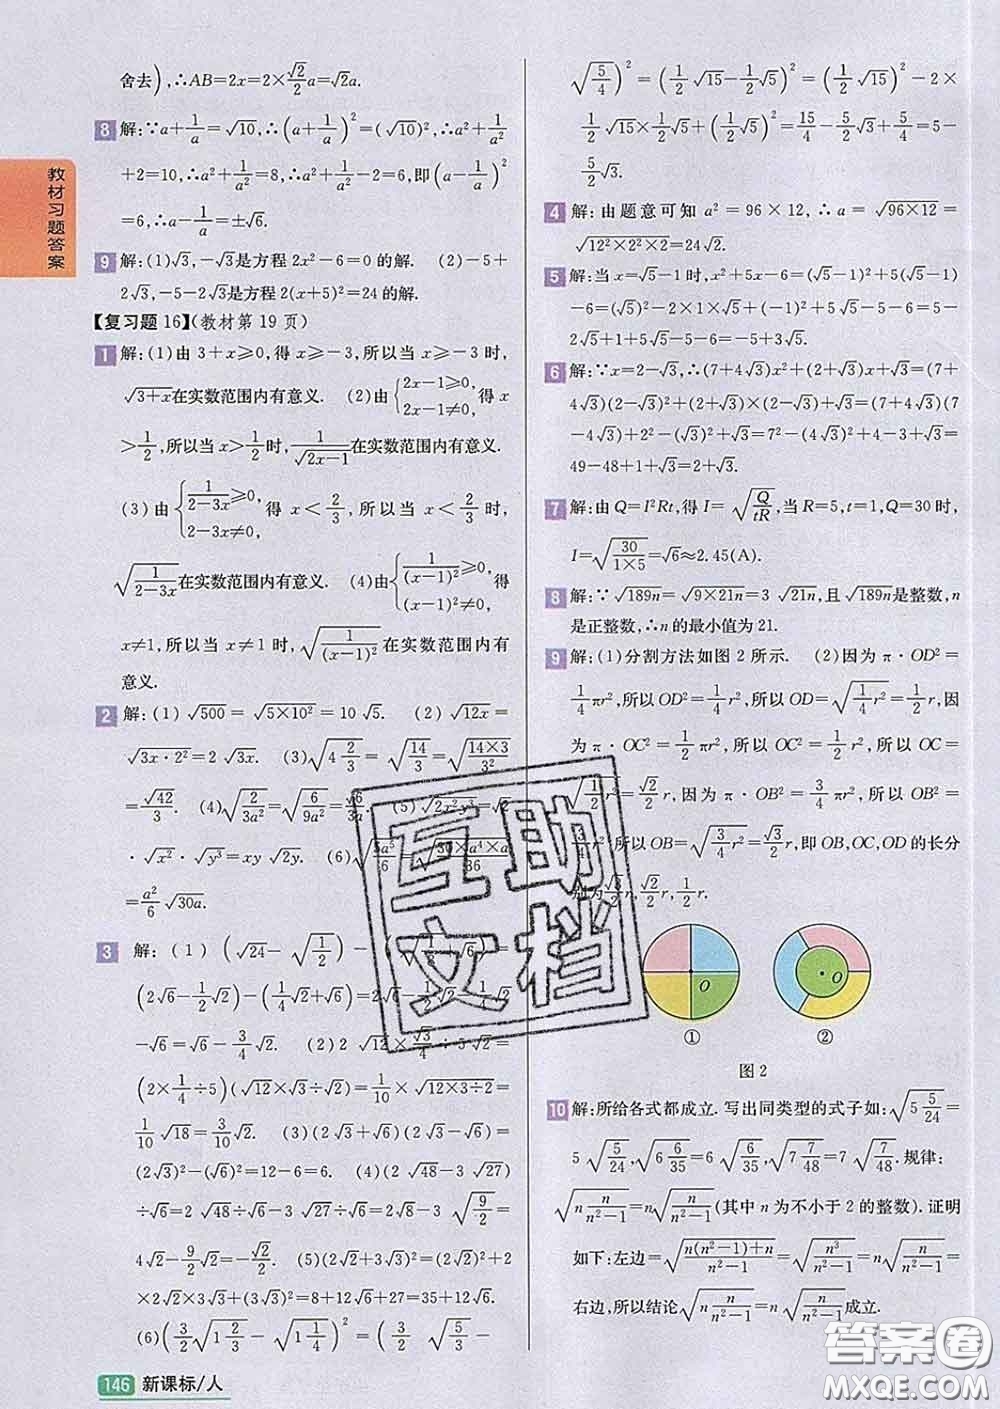 教材习题答案
舍去),∴AB=2x=2×√2/2a=√2a.
8 解:∵a+1/a=√10,∴(a+1/a)²=(√10)²,∴a²+1/a²
+2=10,∴a²+1/a²=8,∴a²+1/a²-2=6,即(a-1/a)²
=6,∴a-1/a=±√6.
9 解:(1)√3,-√3是方程2x²-6=0的解. (2)-5+
2√3,-5-2√3是方程2(x+5)²=24的解.
【复习题16】(教材第19页)
1 解:(1)由3+x≥0,得x≥-3,所以当x≥-3时,
√(3+x)在实数范围内有意义. (2)由{2x-1≥0, 2x-1≠0,得x
>1/2,所以当x>1/2时,1/√(2x-1)在实数范围内有意义.
(3)由{1/(2-3x)≥0, 2-3x≠0,得x<2/3,所以当x<2/3时,
√(1/(2-3x))在实数范围内有意义. (4)由{1/(x-1)²≥0, (x-1)²≠0,得
x≠1,所以当x≠1时,√(1/(x-1)²)在实数范围内有
意义.
2 解:(1)√500=√(5×10²)=10√5. (2)√(12x)=
√(3x·2²)=2√(3x). (3)√(4 2/3)=√(14/3)=√((14×3)/3²)
=√42/3. (4)√(2/(3a²))=√(6/(9a²))=√6/(3a). (5)√(2x²y³)=√2
·√x²·√y³=xy√(2y). (6)√(5a⁵/6)=√((30×a⁴×a)/36)
=a²/6√(30a).
3 解:(1)(√24-√(1/2))-(√6)=
(2√6-1/2√2)-(1/4√2+√6)=2√6-1/2√2-1/4√2
-√6=√6-3/4√2. (2)2√12×√3/4÷5√2=
(2×1/4÷5)(√(12×3÷2))=1/10×√(12×3÷2)=
1/10√18=3/10√2. (3)(2√3+√6)(2√3-√6)=
(2√3)²-(√6)²=12-6=6. (4)(2√48-3√27)
÷√6=2√48÷√6-3√27÷√6=2√8-3√(9/2)=
4√2-9/2√2=-√2/2. (5)(2√2+3√3)²=(2√2)²+2
×2√2×3√3+(3√3)²=8+12√6+27=35+12√6.
(6)(3/2√(1 2/3)-√(1 1/4))²=(3/2√(5/3)-
√(5/4))²=(1/2√15-1/2√5)²=(1/2√15)²-2×
1/2√15×1/2√5+(1/2√5)²=15/4-5/2√3+5/4=5-
5/2√3.
4 解:由题意可知a²=96×12,∴a=√(96×12)
=√(12²×2²×2)=24√2.
5 解:当x=√5-1时,x²+5x-6=(√5-1)²+5(√5-1)
-6=(√5)²-2×√5×1+(-1)²+5√5-5-6=5-
2√5+1+5√5-5-6=-5+3√5.
6 解:∵x=2-√3,∴(7+4√3)x²+(2+√3)x+√3=(7+
4√3)(2-√3)²+(2+√3)×(2-√3)+√3=(7+4√3)(7
-4√3)+2²-(√3)²+√3=7²-(4√3)²+4-3+√3=
49-48+1+√3=2+√3.
7 解:由Q=I²Rt,得I=√(Q/tR),当R=5,t=1,Q=30时,
I=√(30/(1×5))=√6≈2.45(A).
8 解:∵√(189n)=√(9×21n)=3√(21n),且√(189n)是整数,n
是正整数,∴n的最小值为21.
9 解:(1)分割方法如图2所示. (2)因为π·OD²=
1/4πr²,所以OD²=1/4r²,所以OD=√(1/4r²)=1/2r,因
为π·OC²=1/2πr²,所以OC²=1/2r²,所以OC=
√(1/2)r²=√2/2r,因为π·OB²=3/4πr²,所以OB²=
3/4r²,所以OB=√(3/4r²)=√3/2r,即OB,OC,OD的长分
别为√3/2r,√2/2r,1/2r.
O
O
①
②
图2
10 解:所给各式都成立.写出同类型的式子如:√(5 5/24)=
5√(5/24),√(6 6/35)=6√(6/35),√(7 7/48)=7√(7/48).规律:
√(n n/(n²-1))=n√(n/(n²-1))(其中n为不小于2的整数).证明
如下:左边=√((n(n²-1)+n)/(n²-1))=√(n³/(n²-1))=n√(n/(n²-1))=
右边,所以结论√(n n/(n²-1))=n√(n/(n²-1))成立.
互助
文档
146 新课标/人
答案圈
MXQE.COM